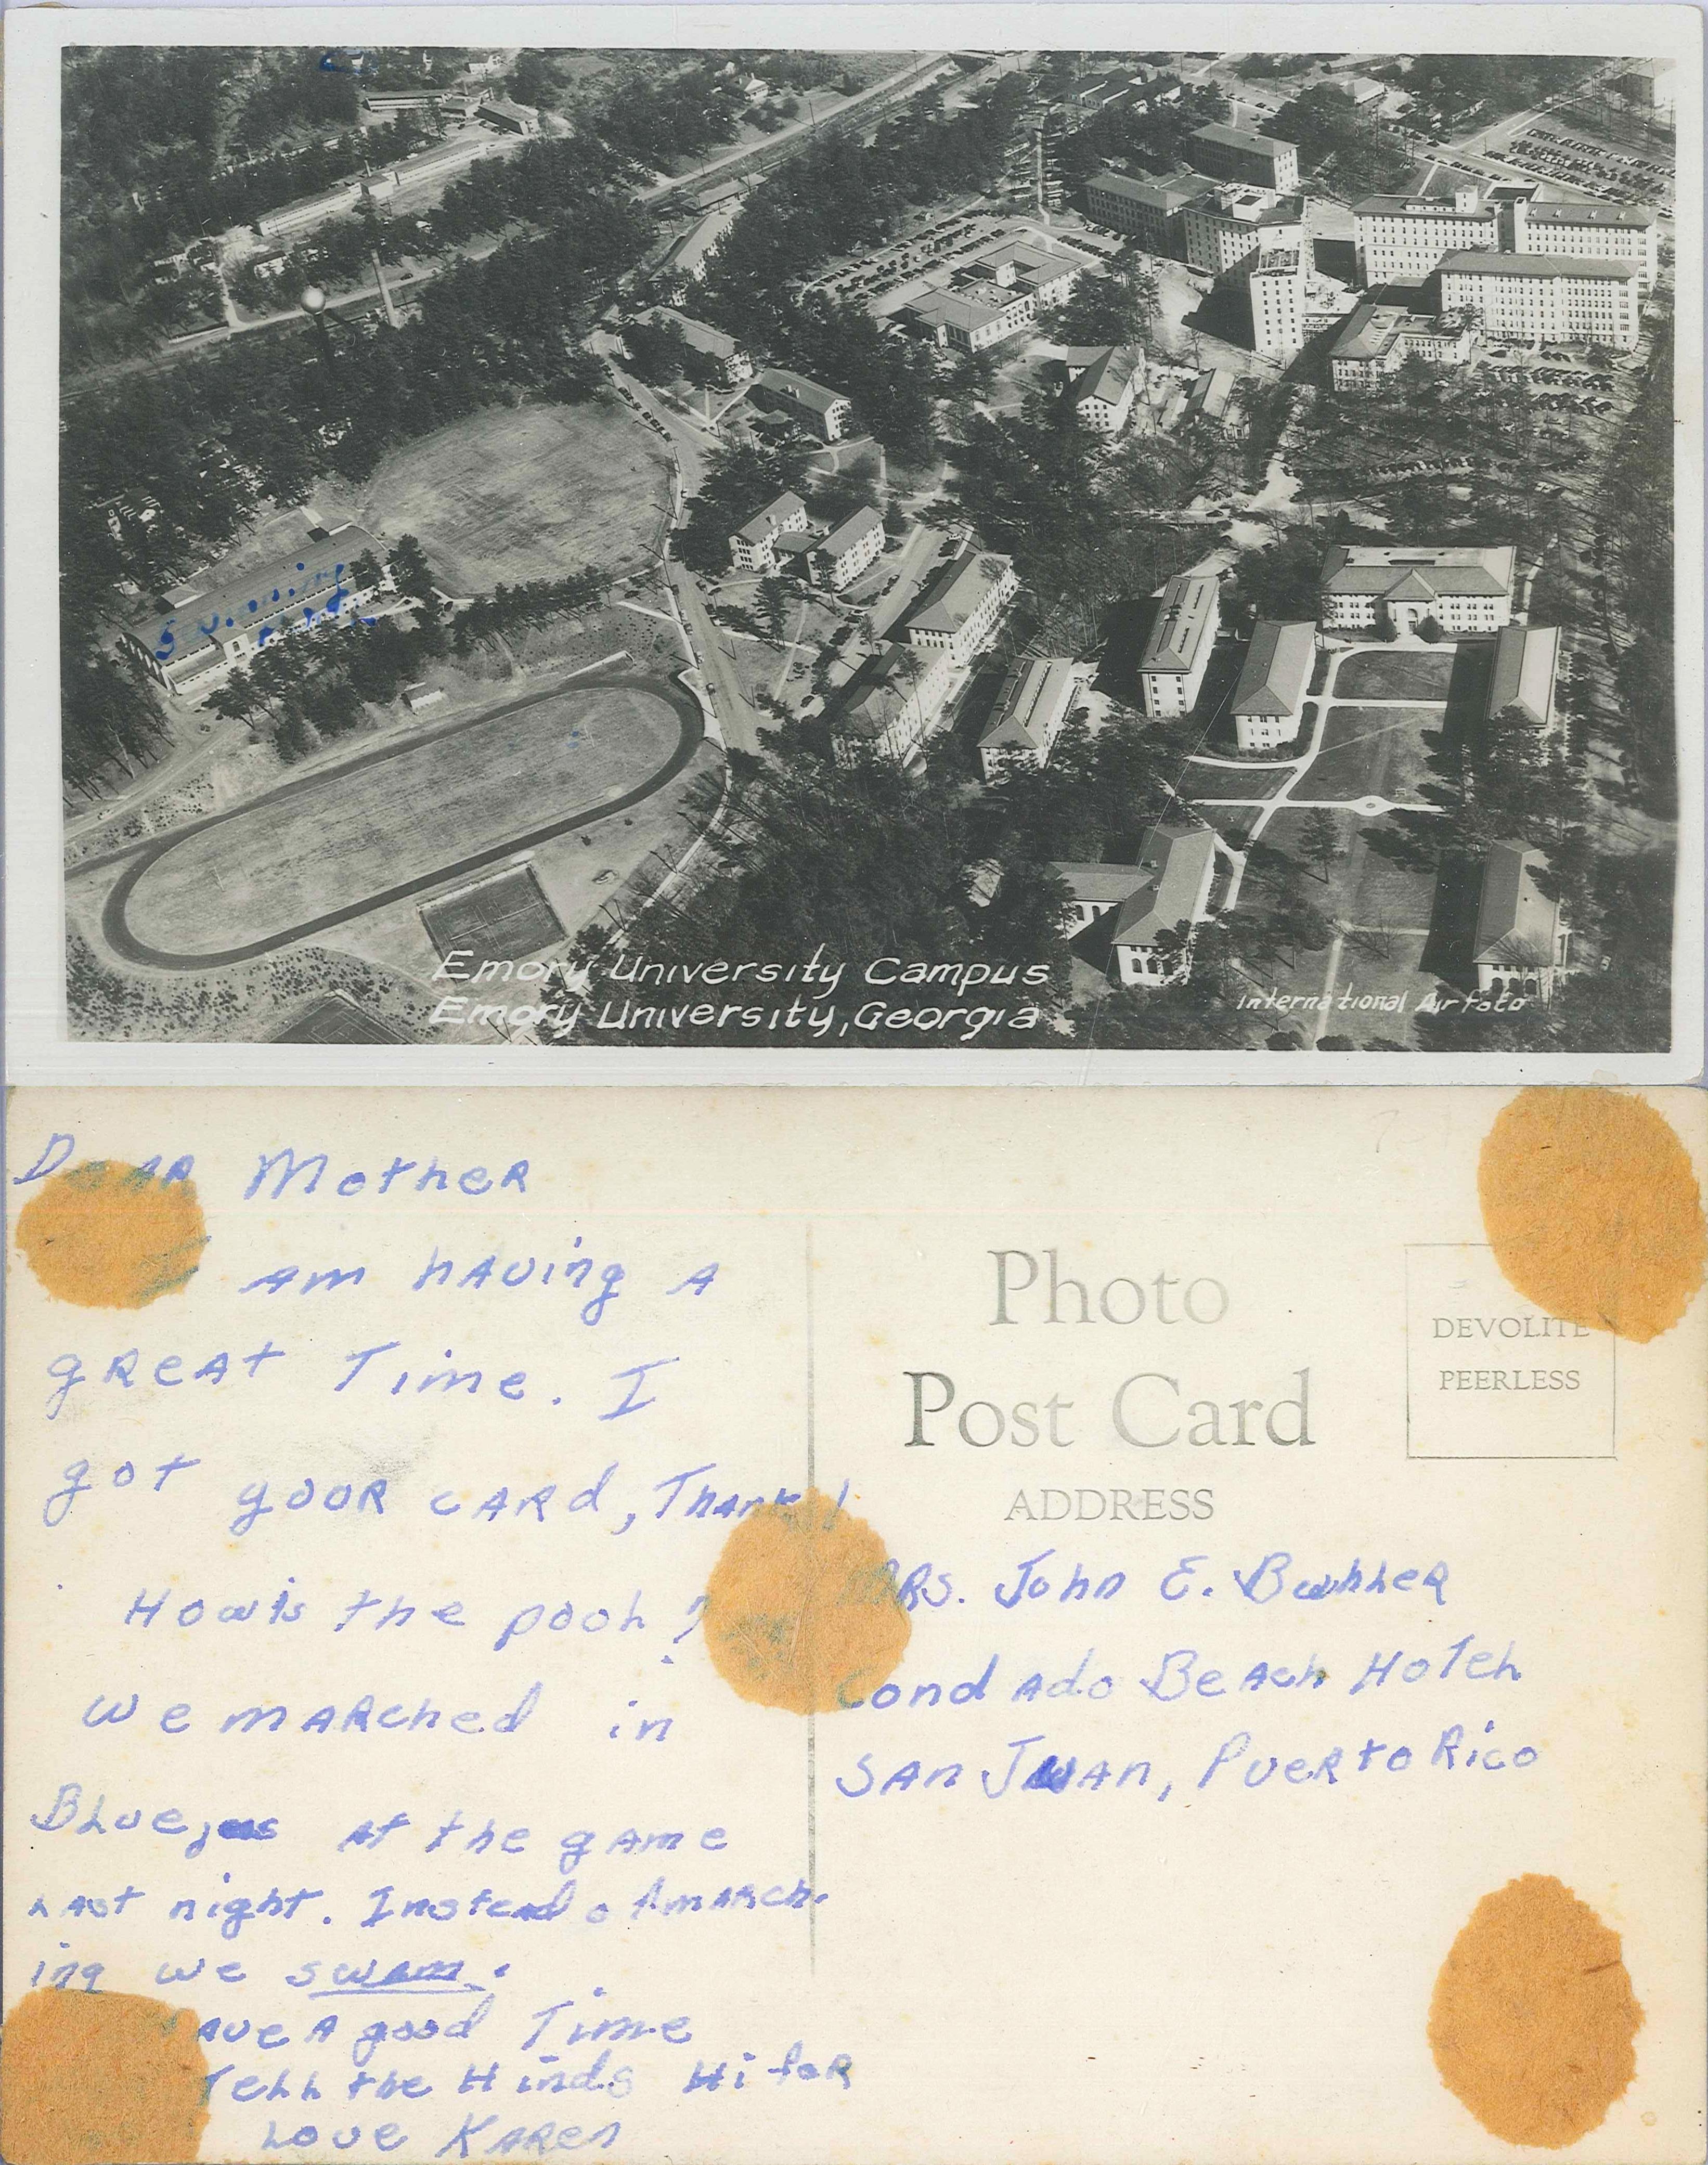 Swimming
Pool
Emory University Campus
Emory University, Georgia
International Airfoto
Dear Mother
am having a
great Time. I
got goor card, Thank
How is the pooh?
we marched in
Blue jeas at the game
Last night. Instead of march-
ing we swam.
ave a good Time
Tell the Hinds Hi for
Love Karen
Photo
Post Card
ADDRESS
DEVOLITE
PEERLESS
Mrs. John E.
Condado Beach Hotel
San Juan, Puerto Rico